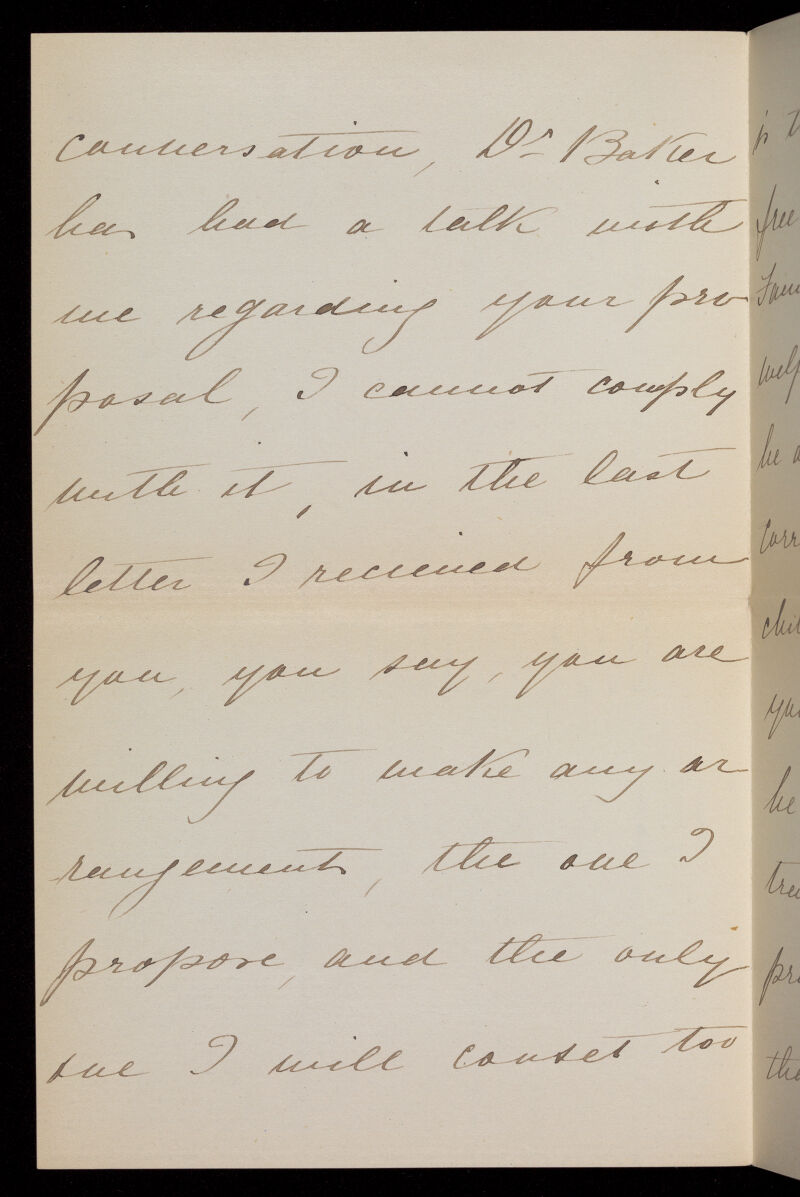 conversation, Dr Baker
has had a talk with
me regarding your pro
posal, I cannot comply
with it, in the last
letter I recieved from
you, you say, you are
willing to make any ar
rangements, the one I
propose, and the only
one I will conset too
free
he